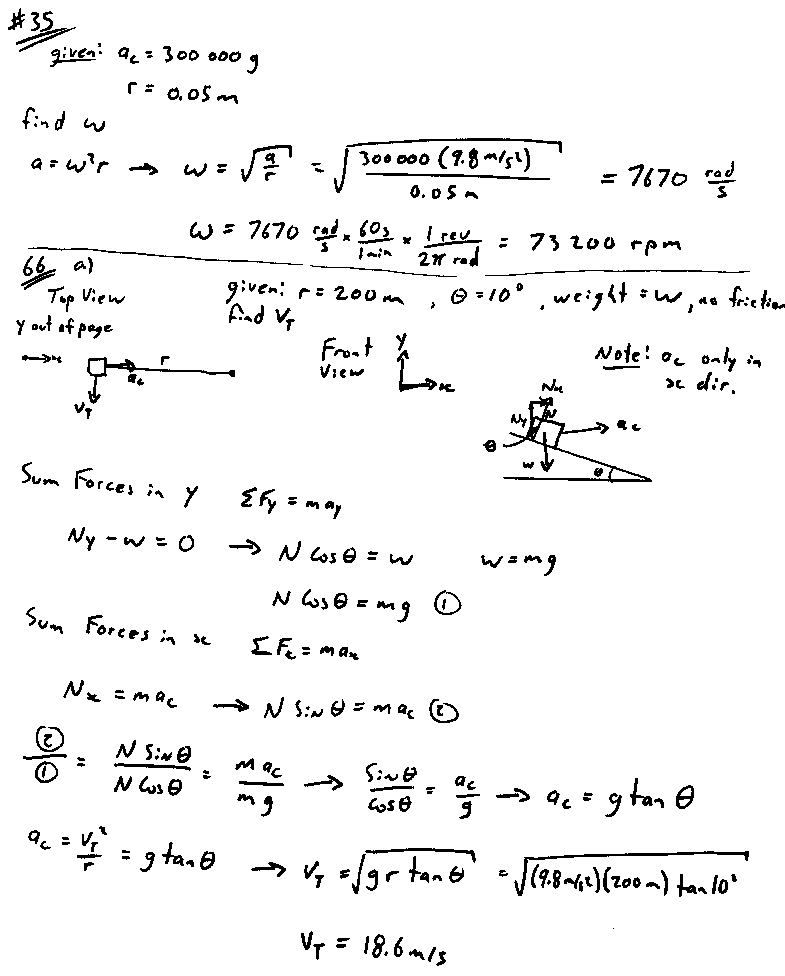 #35
given: a_c = 300 000 g
r = 0.05 m
find ω
a = ω²r → ω = √(a/r) = √(300 000 (9.8 m/s²) / 0.05 m) = 7670 rad/s
ω = 7670 rad/s × 60s/1min × 1 rev/2π rad = 73 200 rpm
66 a) given: r = 200 m, θ = 10°, weight = w, no friction
Top View find V_T
y out of page
→x r a_c V_T
Front View y x
Note! a_c only in
x dir.
N_x N_y N a_c θ w θ
Sum Forces in y ΣF_y = ma_y
N_y - w = 0 → N Cos θ = w w = mg
N Cos θ = mg ①
Sum Forces in x ΣF_x = ma_x
N_x = ma_c → N Sin θ = ma_c ②
②/① = N Sin θ / N Cos θ = m a_c / m g → Sin θ / Cos θ = a_c / g → a_c = g tan θ
a_c = V_T²/r = g tan θ → V_T = √(g r tan θ) = √((9.8 m/s²)(200 m) tan 10°)
V_T = 18.6 m/s